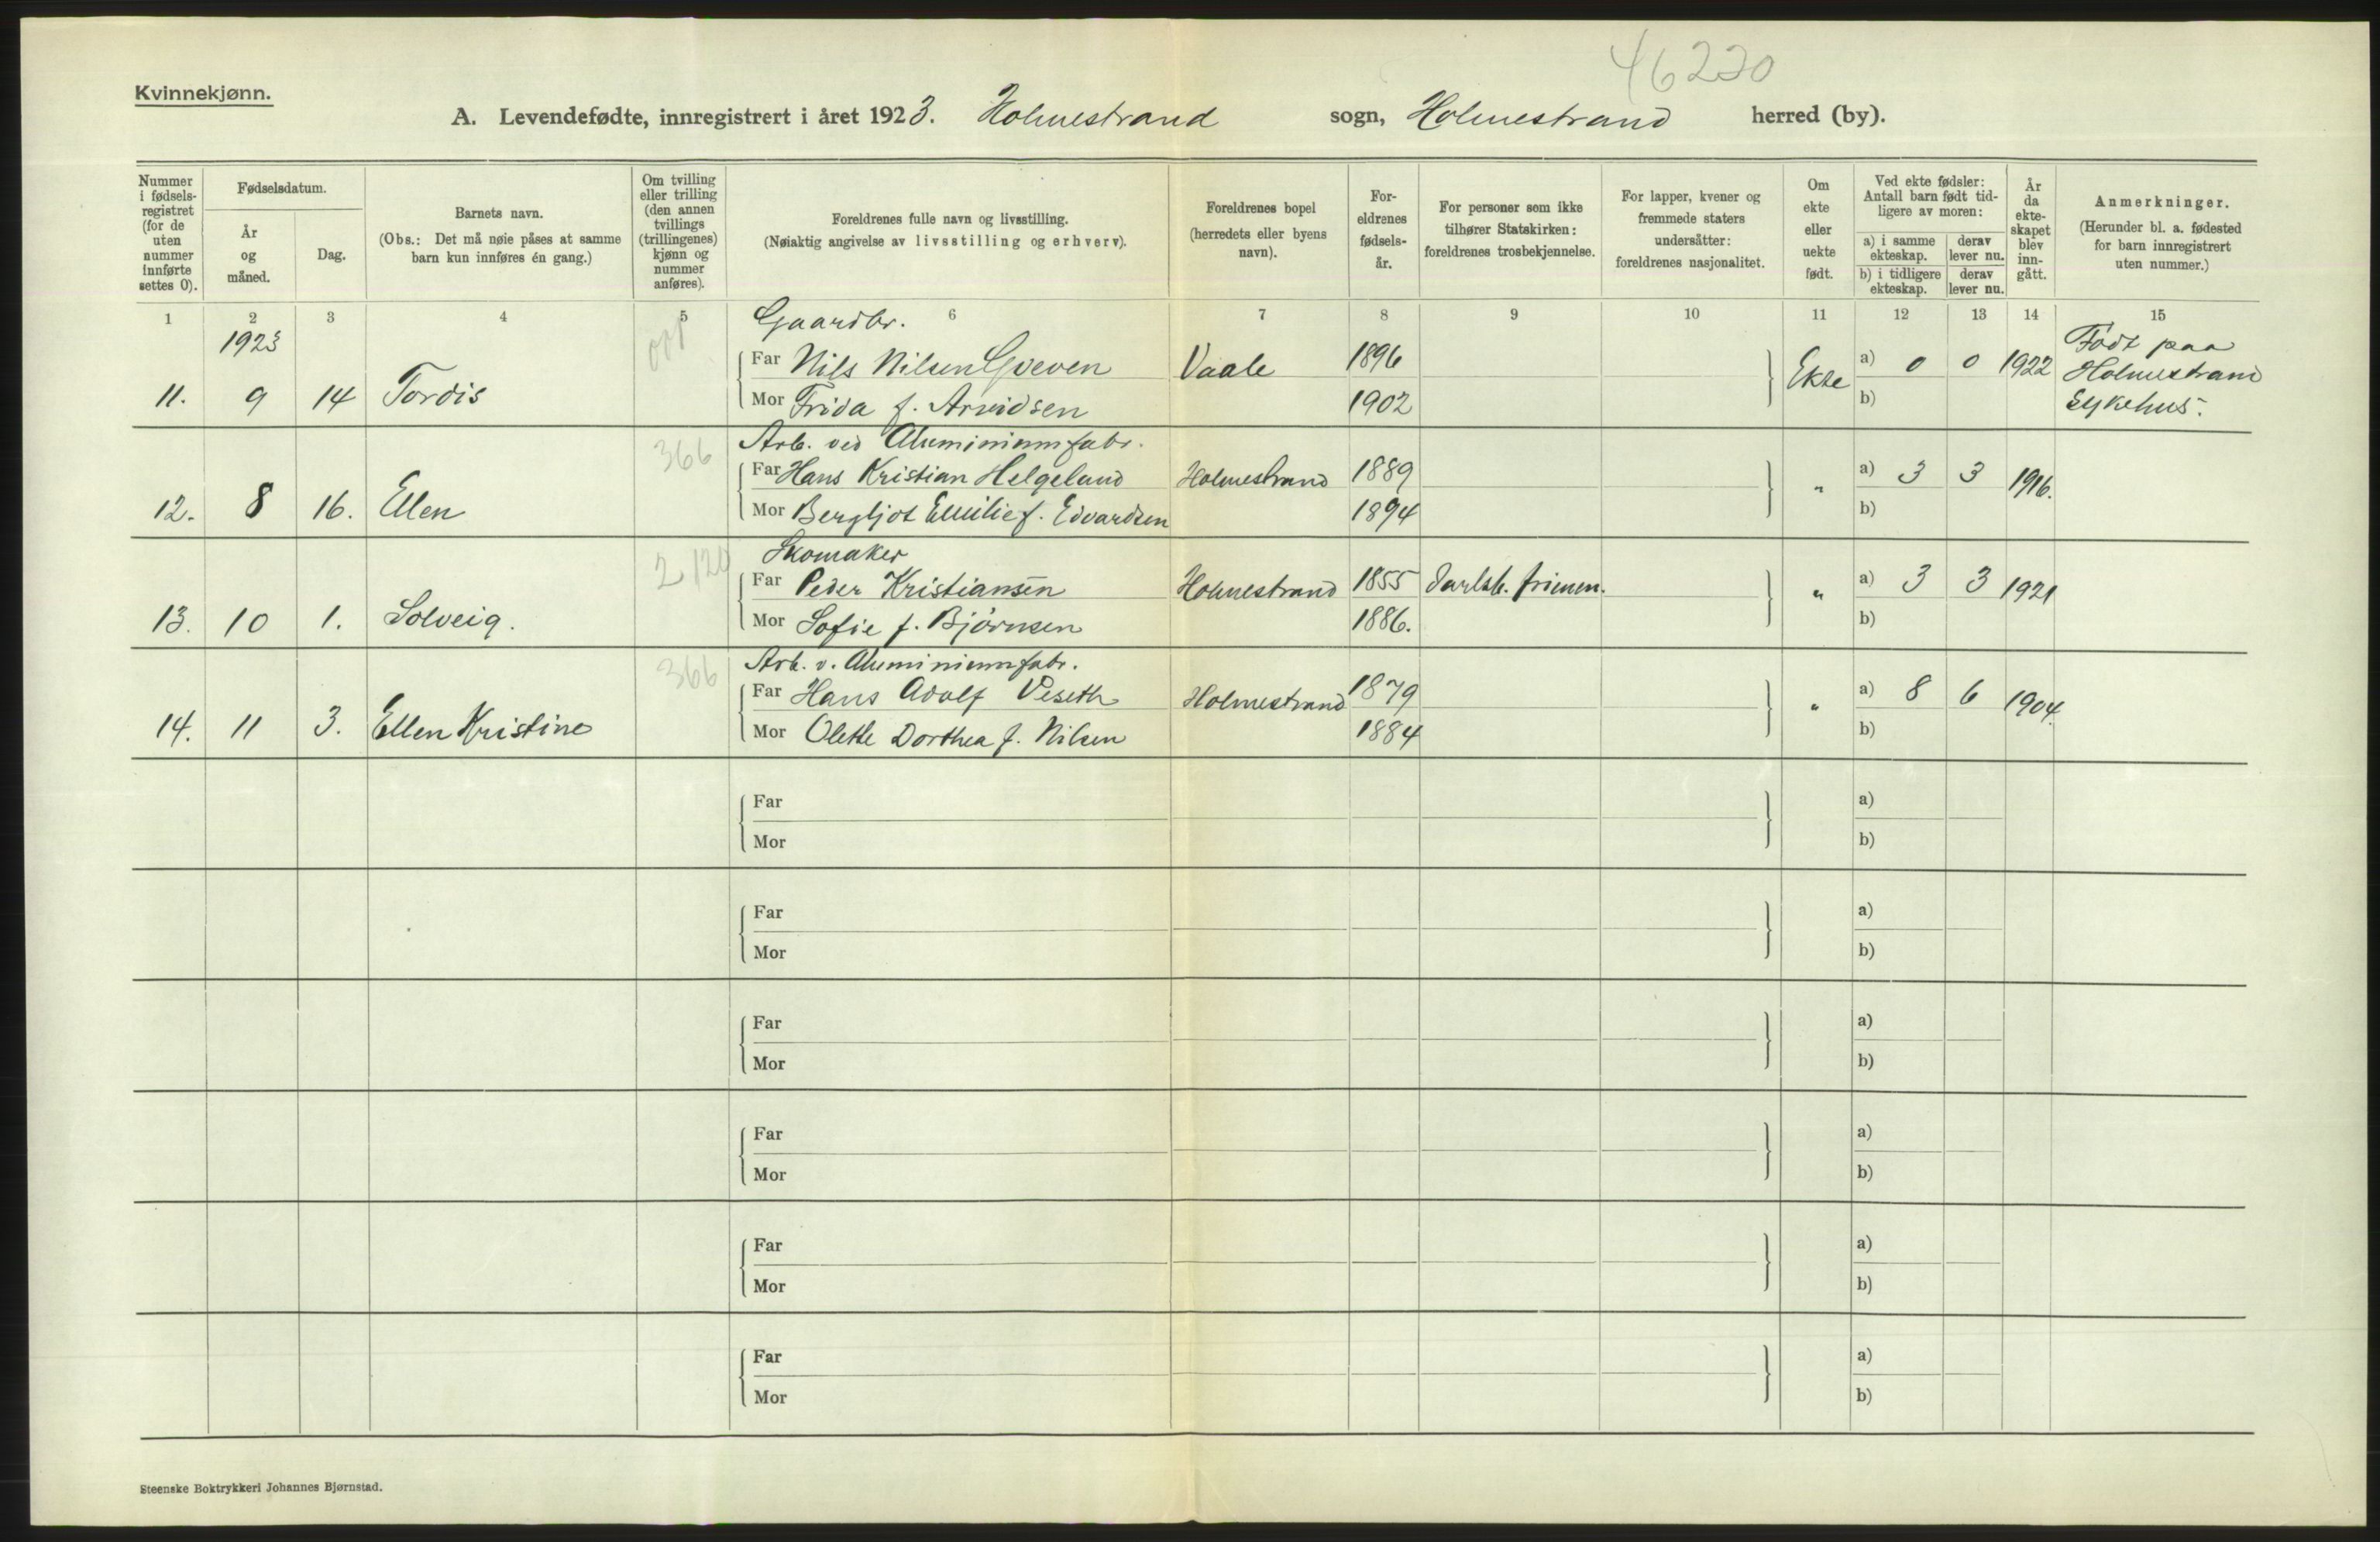 46220
Kvinnekjønn.
A. Levendefødte, innregistrert i året 1923. Holmestrand sogn, Holmestrand herred (by).
Nummer i fødsels-registret (for de uten nummer innførte settes 0).
Fødselsdatum.
År og måned.
Dag.
Barnets navn.
(Obs.: Det må nøie påses at samme barn kun innføres én gang.)
Om tvilling eller trilling (den annen tvillings (trillingenes) kjønn og nummer anføres).
Foreldrenes fulle navn og livsstilling.
(Nøiaktig angivelse av livsstilling og erhverv).
Foreldrenes bopel (herredets eller byens navn).
For-eldrenes fødsels-år.
For personer som ikke tilhører Statskirken: foreldrenes trosbekjennelse.
For lapper, kvener og fremmede staters undersåtter: foreldrenes nasjonalitet.
Om ekte eller uekte født.
Ved ekte fødsler: Antall barn født tid-ligere av moren:
a) i samme ekteskap.
derav lever nu.
b) i tidligere ekteskap.
derav lever nu.
År da ekte-skapet blev inn-gått.
Anmerkninger.
(Herunder bl. a. fødested for barn innregistrert uten nummer.)
1 2 3 4 5 6 7 8 9 10 11 12 13 14 15
1923
Gaardbr.
Far Nils Nilsen Gveven Vaale 1896 Ekte a) 0 0 1922 Født paa Holmestrand Sykehus.
11. 9 14 Tordis Mor Frida f. Arvidsen 1902 b)
366 Arb. ved Aluminiumfabr.
Far Hans Kristian Helgeland Holmestrand 1889 " a) 3 3 1916.
12. 8 16. Ellen Mor Bergljot Emilie f. Edvardsen 1894 b)
2 120 Skomaker
Far Peder Kristiansen Holmestrand 1855 Jarlsb. frimen. " a) 3 3 1921
13. 10 1. Solveig. Mor Sofie f. Bjørnsen 1886. b)
366 Arb. v. Aluminiumfabr.
Far Hans Adolf Veseth Holmestrand 1879 " a) 8 6 1904.
14. 11 3. Ellen Kristine Mor Olette Dorthea f. Nilsen 1884 b)
Far a)
Mor b)
Far a)
Mor b)
Far a)
Mor b)
Far a)
Mor b)
Far a)
Mor b)
Far a)
Mor b)
Steenske Boktrykkeri Johannes Bjørnstad.